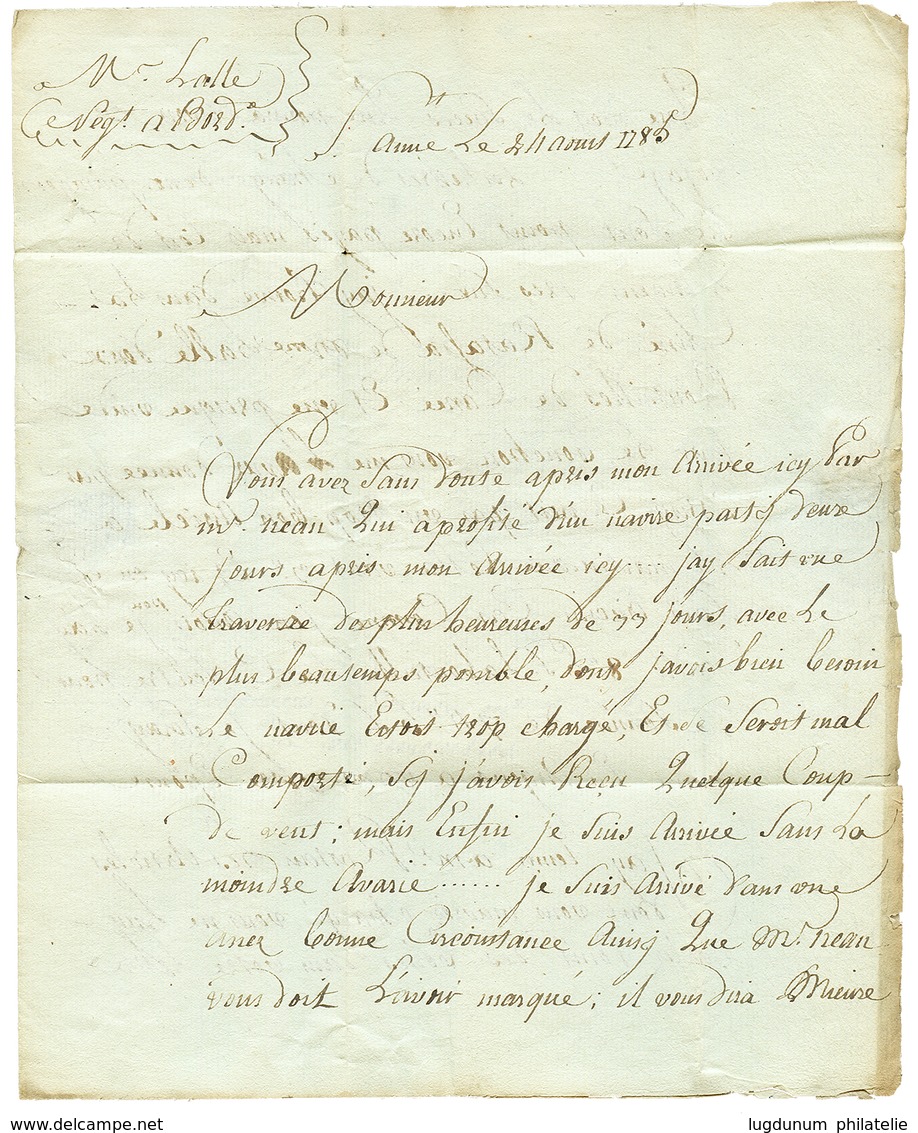 a Mr. Lalle
Negt. a Bordx
St. anne Le 24 aoust 1785
Monsieur
Vous avez Sans doute apris mon Arrivée icy Par
mr. neau Qui a profité d'un navire party deux
Jours apris mon Arrivée icy jay fait une
traversée des plus heureuses de 77 jours, avec Le
plus beautemps possible, dont javois bien besoin
Le navire Estoit trop chargé, Et Se Seroit mal
Comporté, Sy j'avois Reçu Quelque Coup
de vent; mais Enfin je Suis Arrivée Sans La
moindre Avarie ...... je Suis Arrivé dans une
assez bonne Circoustance Ainsy Que Mr. neau
vous doit L'avoir marqué; il vous dira Mieux
lugdunum philatelie